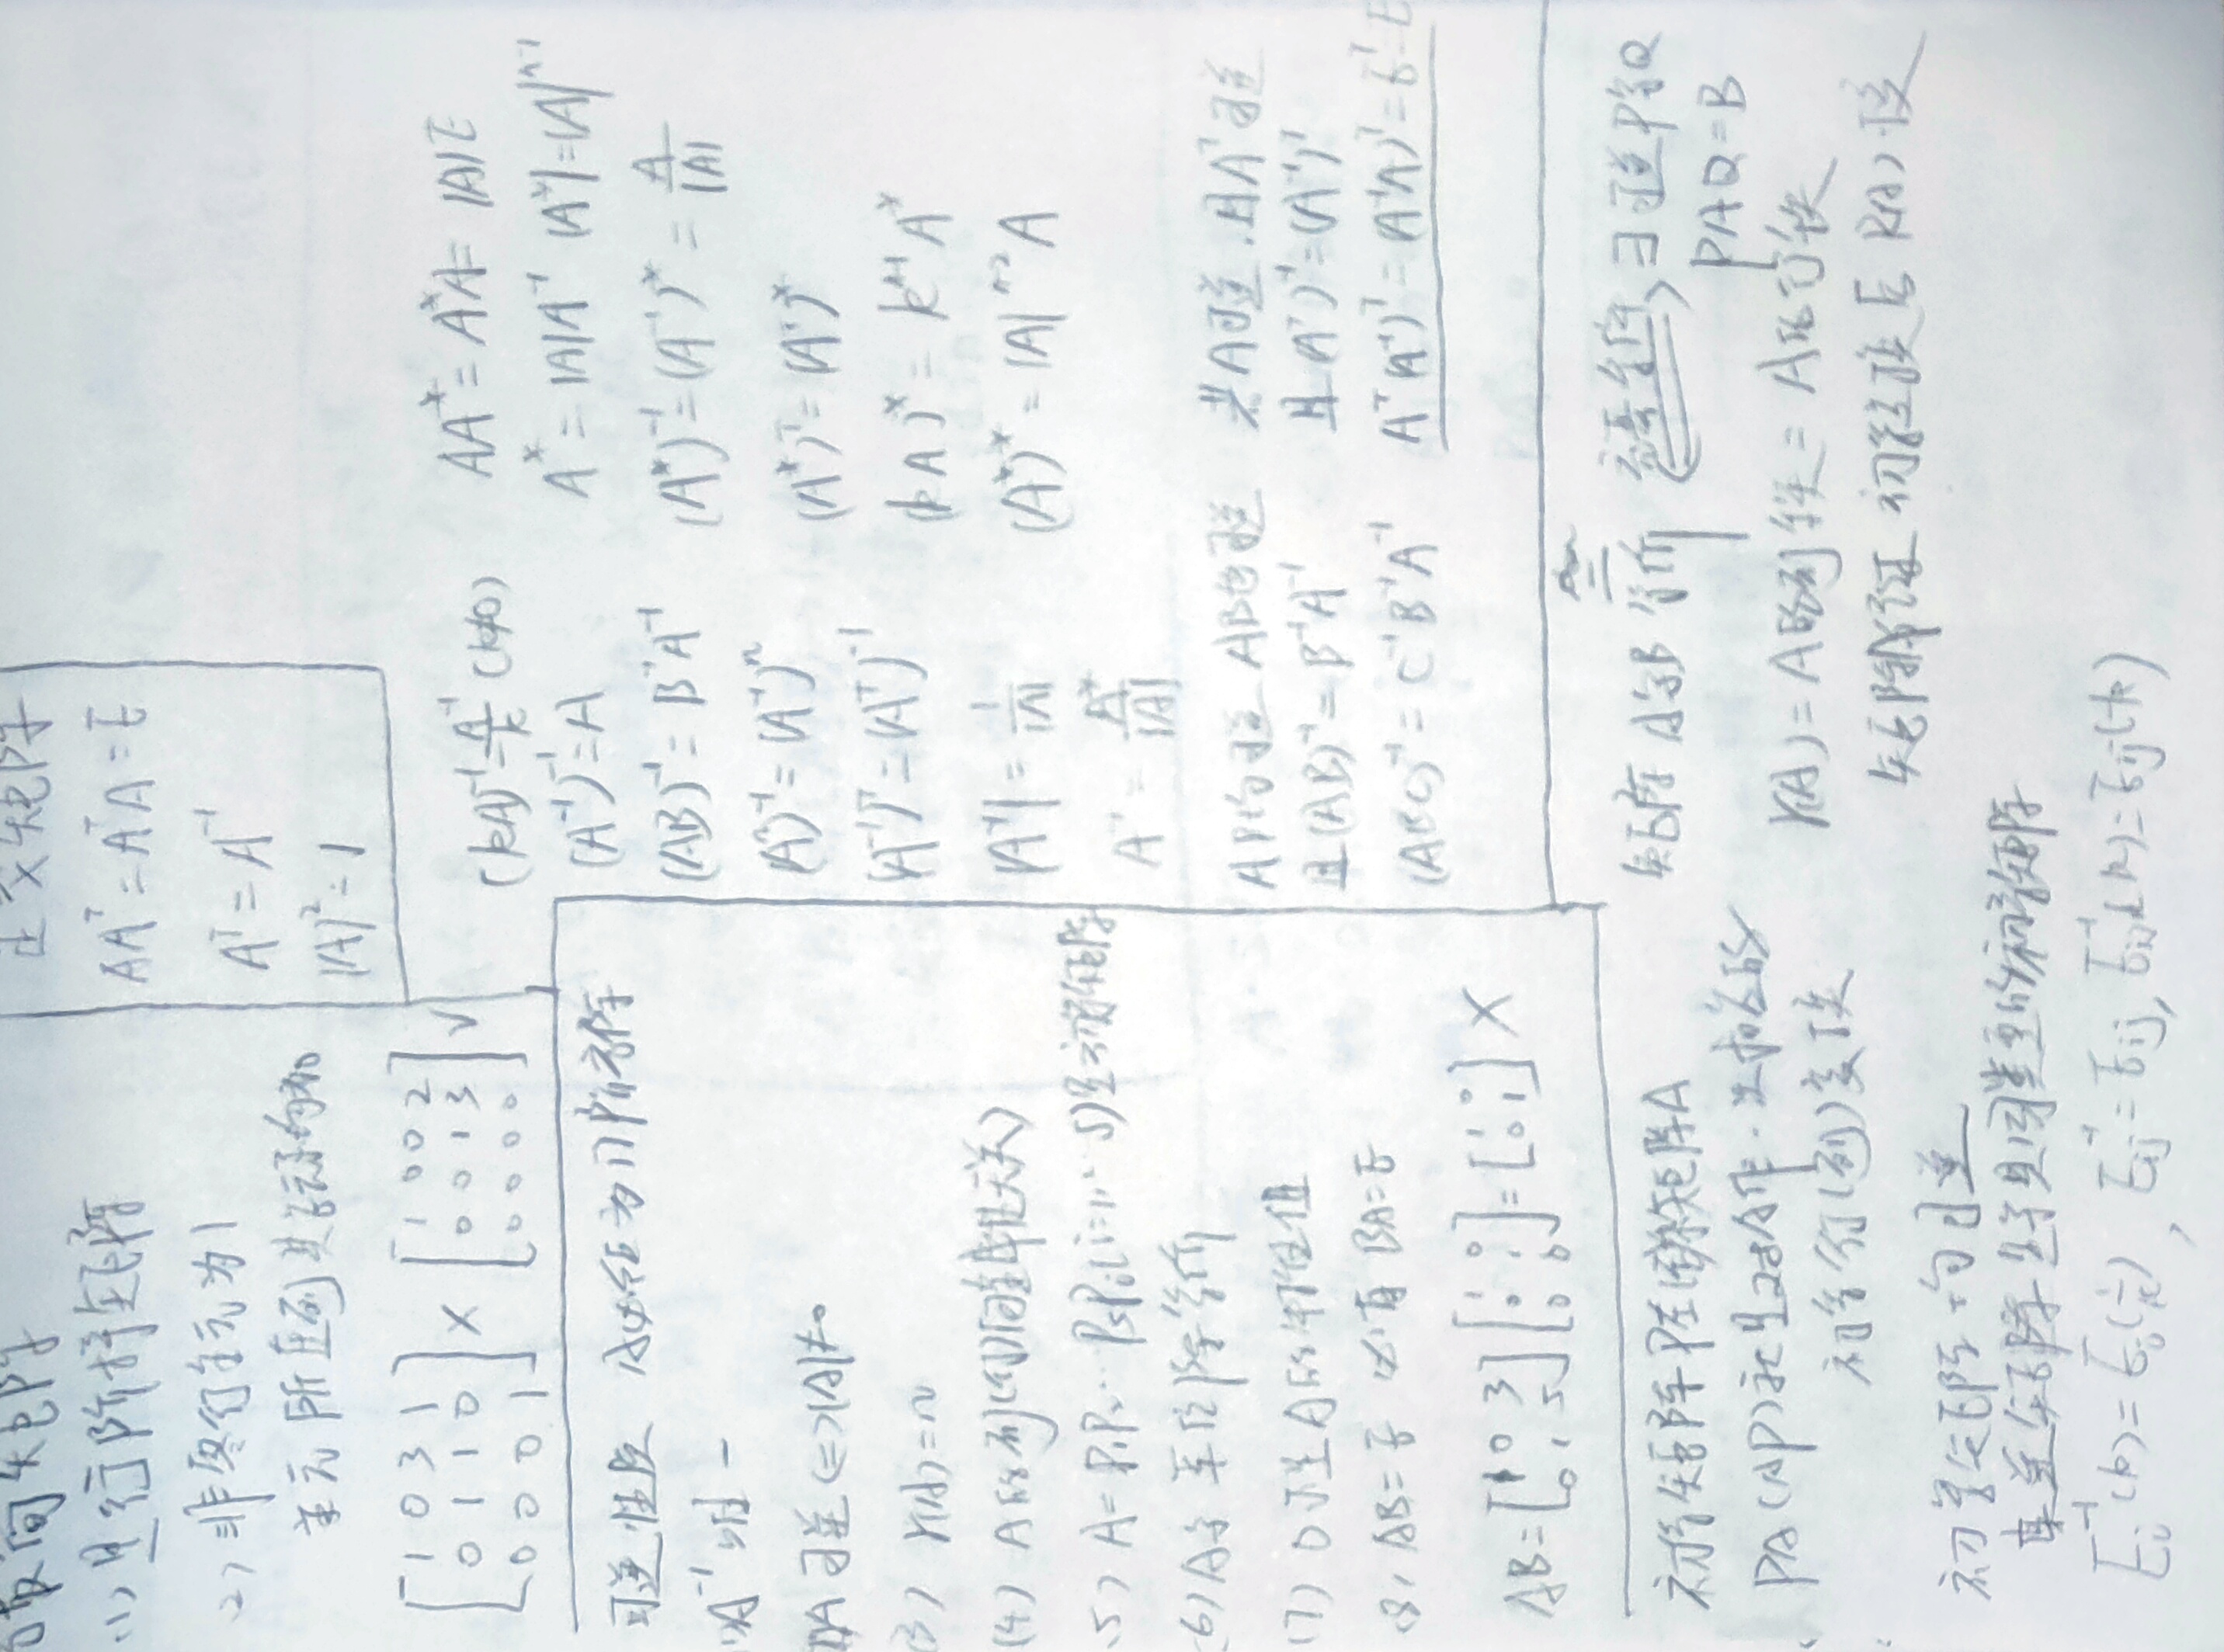 最简矩阵
(1) 是行阶梯矩阵
(2) 非零行主元为1
主元所在列其它元素均为0
[1 0 3 1
0 1 1 0
0 0 0 1] ×
[1 0 0 2
0 0 1 3
0 0 0 0] √
正交矩阵
AAᵀ = AᵀA = E
Aᵀ = A⁻¹
|A|² = 1
可逆性质 A必须为n阶方阵
(1) A⁻¹唯一
A可逆 <=> |A|≠0
(3) r(A) = n
(4) A的列(行)向量线性无关)
(5) A = P₁P₂…PsPi(i=1,…s)是初等矩阵
(6) A与单位阵等价
(7) 0不是A的特征值
(8) AB = E 必有 BA = E
AB = [1 0 3
0 1 5] [1 0
0 1
0 0] = [1 0
0 1] ×
(kA)⁻¹ = A⁻¹/k (k≠0)
(A⁻¹)⁻¹ = A
(AB)⁻¹ = B⁻¹A⁻¹
(Aⁿ)⁻¹ = (A⁻¹)ⁿ
(A⁻¹)ᵀ = (Aᵀ)⁻¹
|A⁻¹| = 1/|A|
A⁻¹ = A*/|A|
AA* = A*A = |A|E
A* = |A|A⁻¹ |A*| = |A|ⁿ⁻¹
(A*)⁻¹ = (A⁻¹)* = A/|A|
(A*)ᵀ = (Aᵀ)*
(kA)* = kⁿ⁻¹A*
(A*)* = |A|ⁿ⁻²A
AB均可逆 AB也可逆
且(AB)⁻¹ = B⁻¹A⁻¹
(ABC)⁻¹ = C⁻¹B⁻¹A⁻¹
若A可逆,且Aᵀ可逆
且(Aᵀ)⁻¹ = (A⁻¹)ᵀ
Aᵀ(A⁻¹)ᵀ = (A⁻¹A)ᵀ = Eᵀ = E
初等矩阵P左(右)乘矩阵A
PA(AP)就是对A作一次相应的
初等行(列)变换
初等矩阵均可逆
其逆矩阵是与其同类型的初等矩阵
Ei⁻¹(k) = Ei(1/k), Eij⁻¹ = Eij, Eij⁻¹(k) = Eij(-k)
矩阵A与B等价 充要条件 ∃可逆P与Q
PAQ = B
r(A) = A的列秩 = A的行秩
矩阵A经过初等变换后 R(A)不变